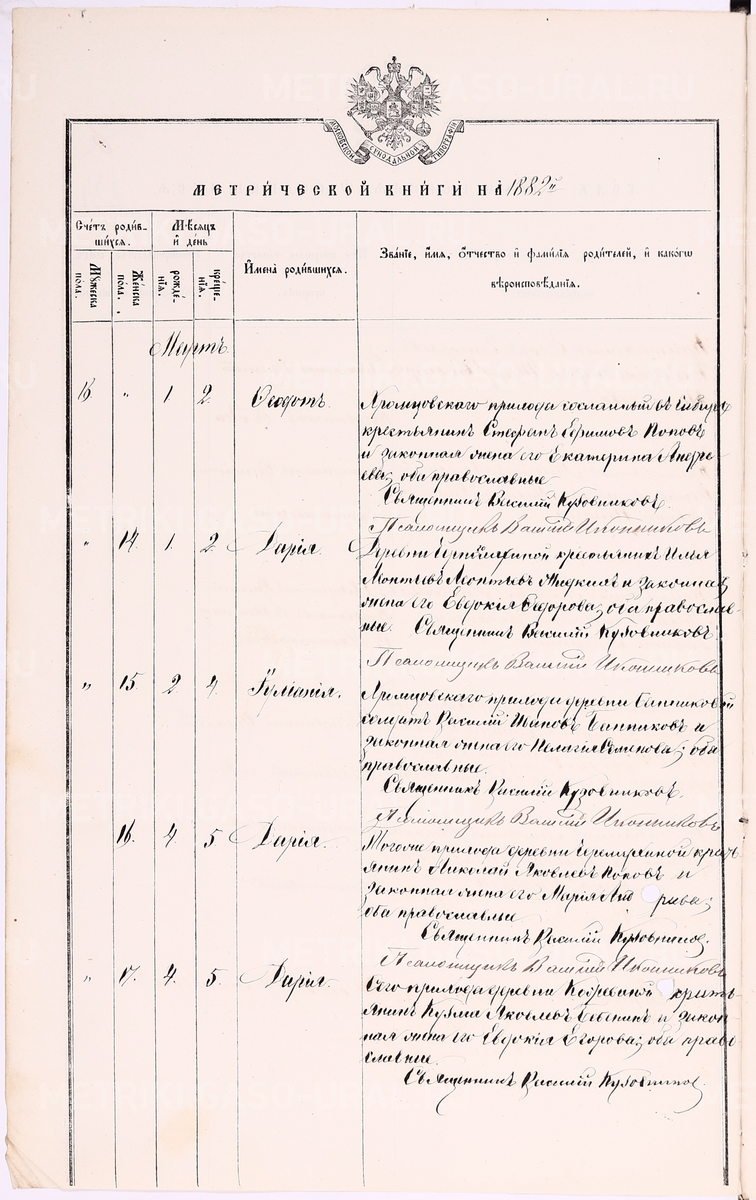 МОСКОВСКОЙ СУНОДАЛЬНОЙ ТИПОГРАФИИ
МЕТРИЧЕСКОЙ КНИГИ НА 1882й
Счетъ родив-
шихся.
Мѣсяцъ
и день
Мужеска
пола.
Женска
пола.
рожде-
нія.
креще-
нія.
Имена родившихся.
Званіе, имя, отчество и фамилія родителей, и какогѡ
вѣроисповѣданія.
Мартъ.
16. " 1 2 Ѳеодотъ.
Хромцовскаго прихода сосланный въ Сибирь
крестьянинъ Стефанъ Ефимовъ Поповъ
и законная жена его Екатерина Андре-
ева; оба православные
Священникъ Василій Кузовниковъ.
Псаломщикъ Василій Иконниковъ
" 14. 1. 2. Дарія.
Деревни крестьянинъ Илья
Леонтьевъ Жидкихъ и законная
жена его Евдокія Ѳедорова; оба православ-
ные. Священникъ Василій Кузовниковъ.
Псаломщикъ Василій Иконниковъ
" 15. 2 4. Іуліанія.
Хромцовскаго прихода деревни
солдатъ Василій Банниковъ и
законная жена его Пелагія Семенова; оба
православные.
Священникъ Василій Кузовниковъ.
Псаломщикъ Василій Иконниковъ
16. 4 5 Дарія.
Тогоже прихода деревни кресть-
янинъ Николай Яковлевъ Поповъ и
законная жена его Марія
оба православные
Священникъ Василій Кузовниковъ.
Псаломщикъ Василій Иконниковъ
" 17. 4. 5. Дарія.
Сего прихода деревни кресть-
янинъ Кузма Яковлевъ и закон-
ная жена его Евдокія Егорова; оба право-
славные.
Священникъ Василій Кузовниковъ.